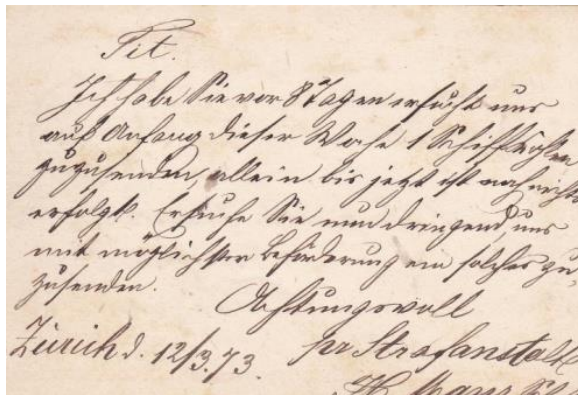 Tit.
Ich habe Sie vor 8 Tagen ersucht uns
auf Anfang dieser Woche 1 Schiff
zuzusenden, allein bis jetzt ist noch nichts
erfolgt. Ersuche Sie nun dringend, uns
mit möglichster Beförderung ein solches zu-
zusenden.
Achtungsvoll
Zürich d. 12/3. 73. pr Strafanstalt